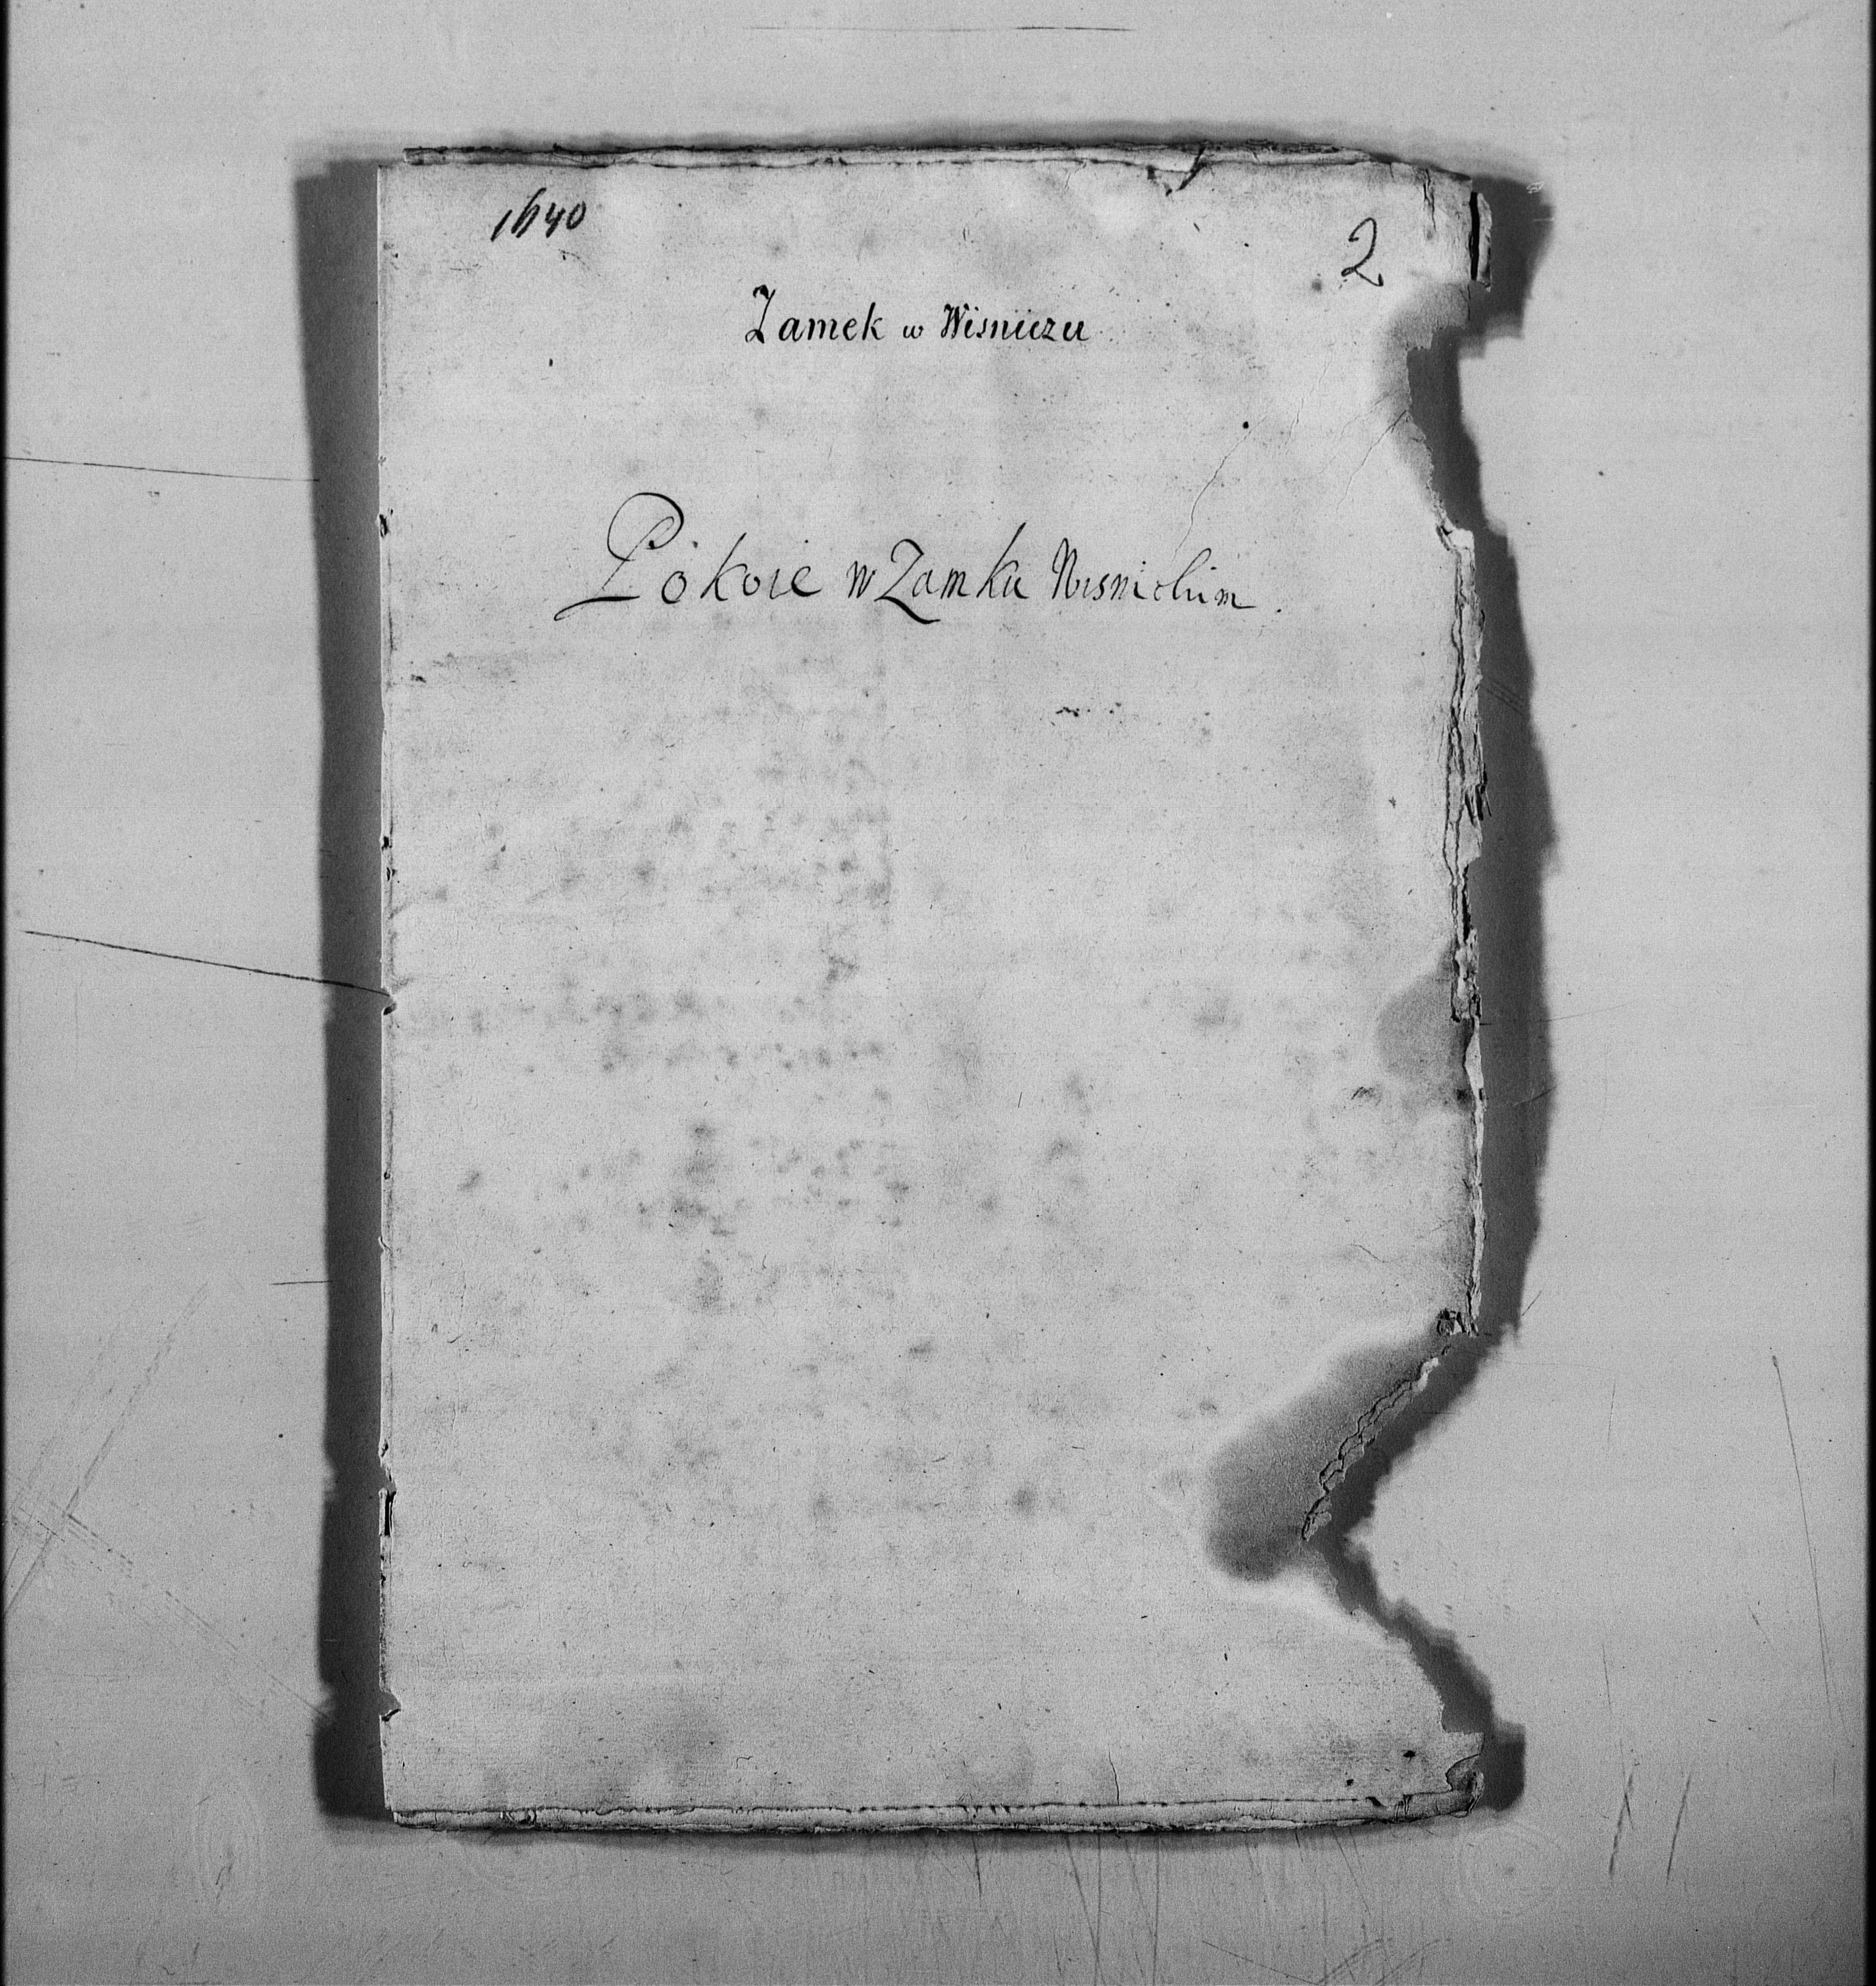 1640
2
Zamek w Wisniczu
Pokoie w Zamku Wisnickim.